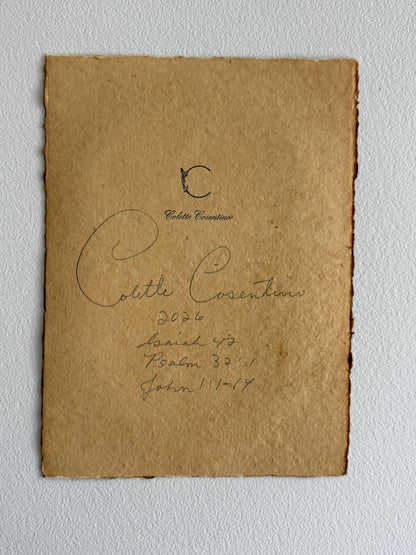 C
Colette Cosentino
Colette Cosentino
2026
Isaiah 42
Psalm 32:1
John 1:1-14